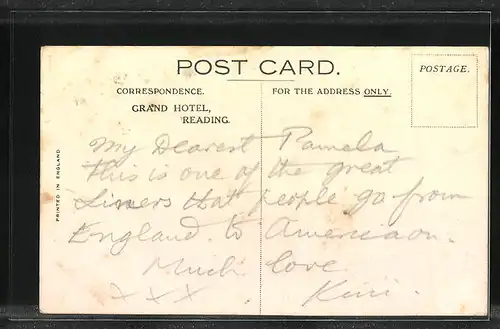 POST CARD.
CORRESPONDENCE.
FOR THE ADDRESS ONLY.
POSTAGE.
GRAND HOTEL,
READING.
PRINTED IN ENGLAND
My Dearest Pamela
This is one of the great
Liners that people go from
England. to America on.
Much love
XXX